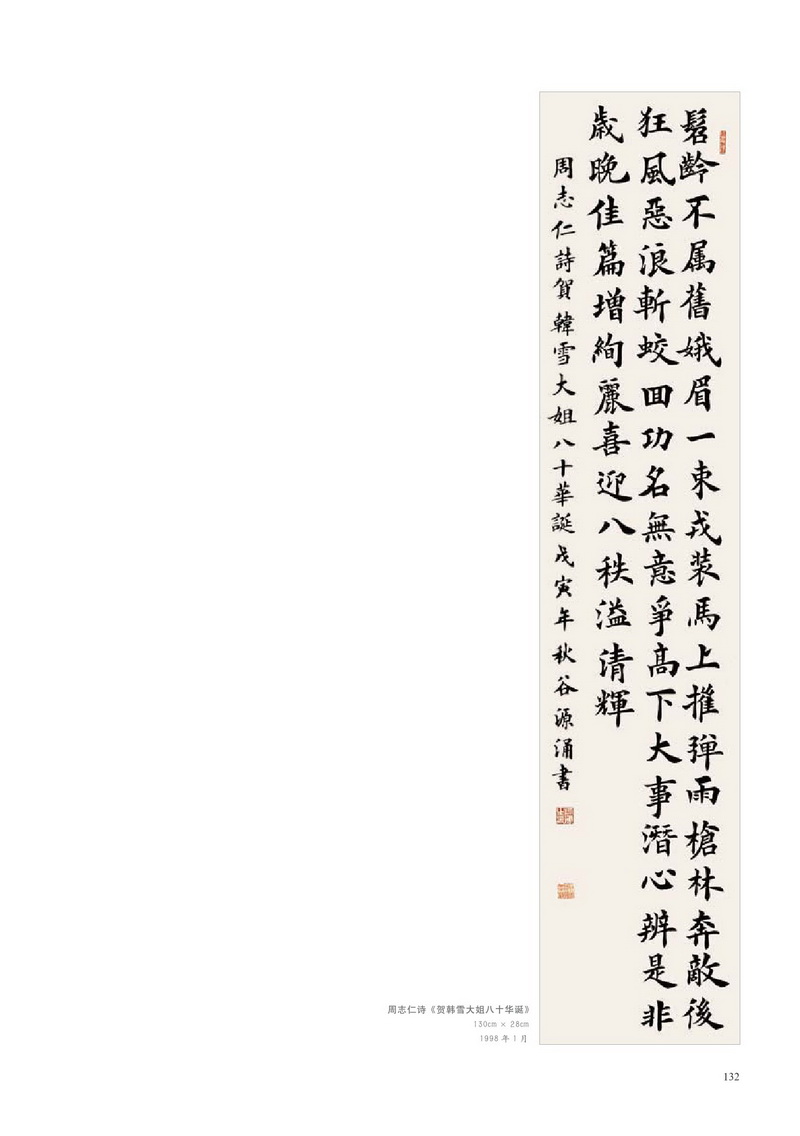 髫齡不属舊娥眉一束戎装馬上摧彈雨槍林奔敵後
狂風惡浪斬蛟囬功名無意爭髙下大事潛心辨是非
歲晚佳篇增絢麗喜迎八秩溢清輝
周志仁詩賀韓雪大姐八十華誕戊寅年秋谷源涌書
周志仁诗《贺韩雪大姐八十华诞》
130cm × 28cm
1998 年 1 月
132